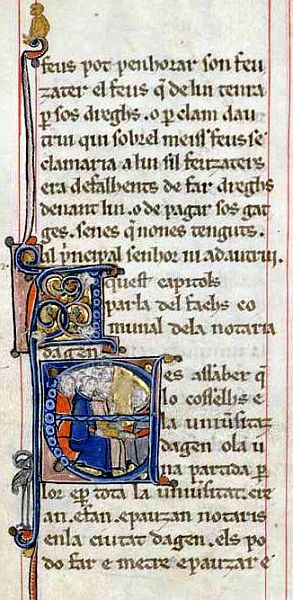 feus pot penhorar son feu
zater el feus q̃ de lui tenra
ꝑ sos dreghs. o ꝑ clam dau
trui qui sobrel meiſſ feus se
clamaria a lui sil feuzaters
era defalhents de far dreghs
denant lui. o de pagar sos gat
ges. senes q̃ nones tenguts.
al p'ncipal senhor ni ad autrui.
Aquest capitols
parla del faehs co
munal dela notaria
dagen
Es assaber q̃
lo cosselhs e
la uniũsitaz
dagen o la u
na partida ꝑ
lor e ꝑ tota la uniũsitat. cre
an. e fan. e pauzan notaris
en la ciutat dagen. els po
do far e metre e pauzar e